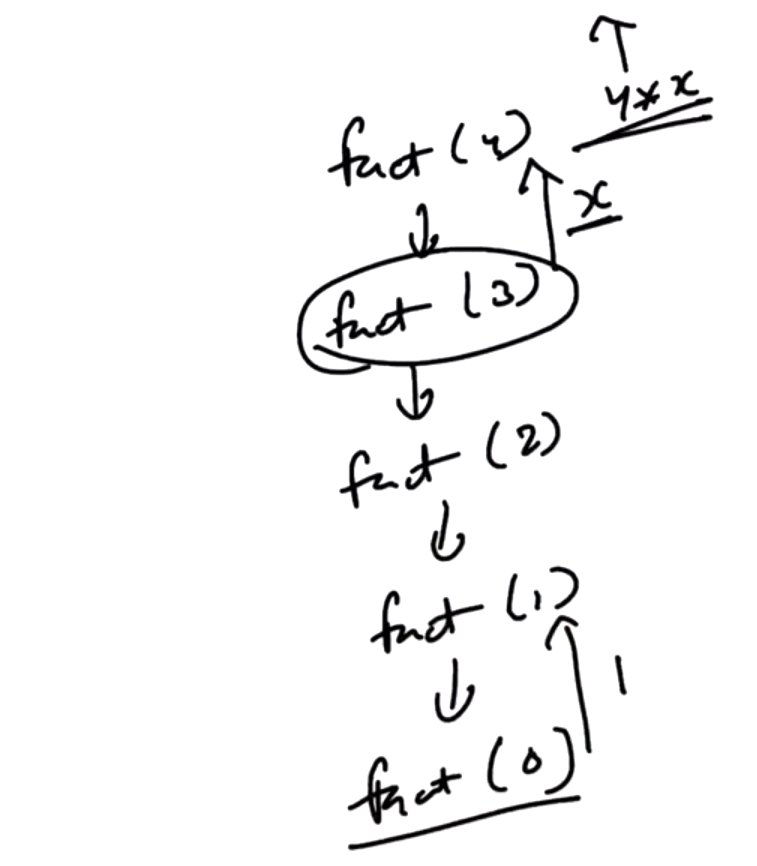 4*x
fact (4)
x
fact (3)
fact (2)
fact (1)
1
fact (0)